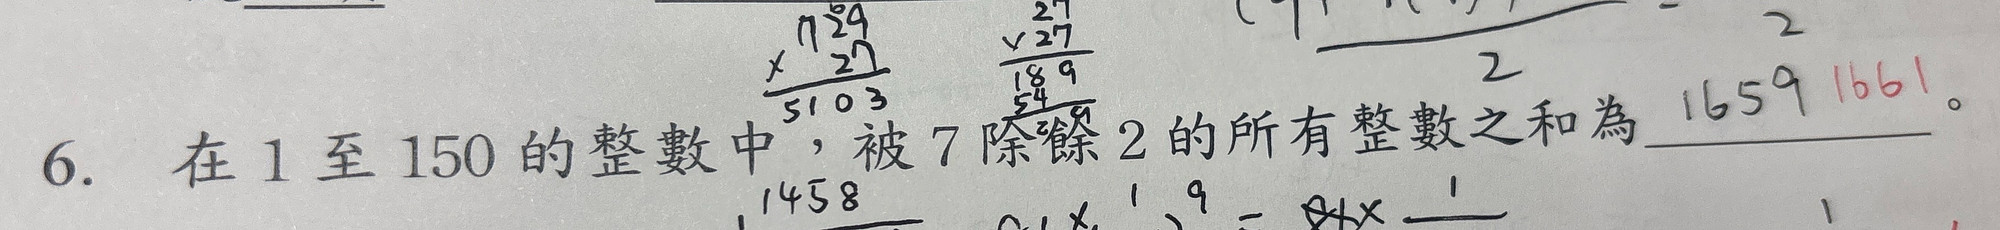 729 27
× 27 × 27
5103 189
54
2
2
6. 在 1 至 150 的整數中，被 7 除餘 2 的所有整數之和為 1659 1661。
1458
1 9 = 1
1